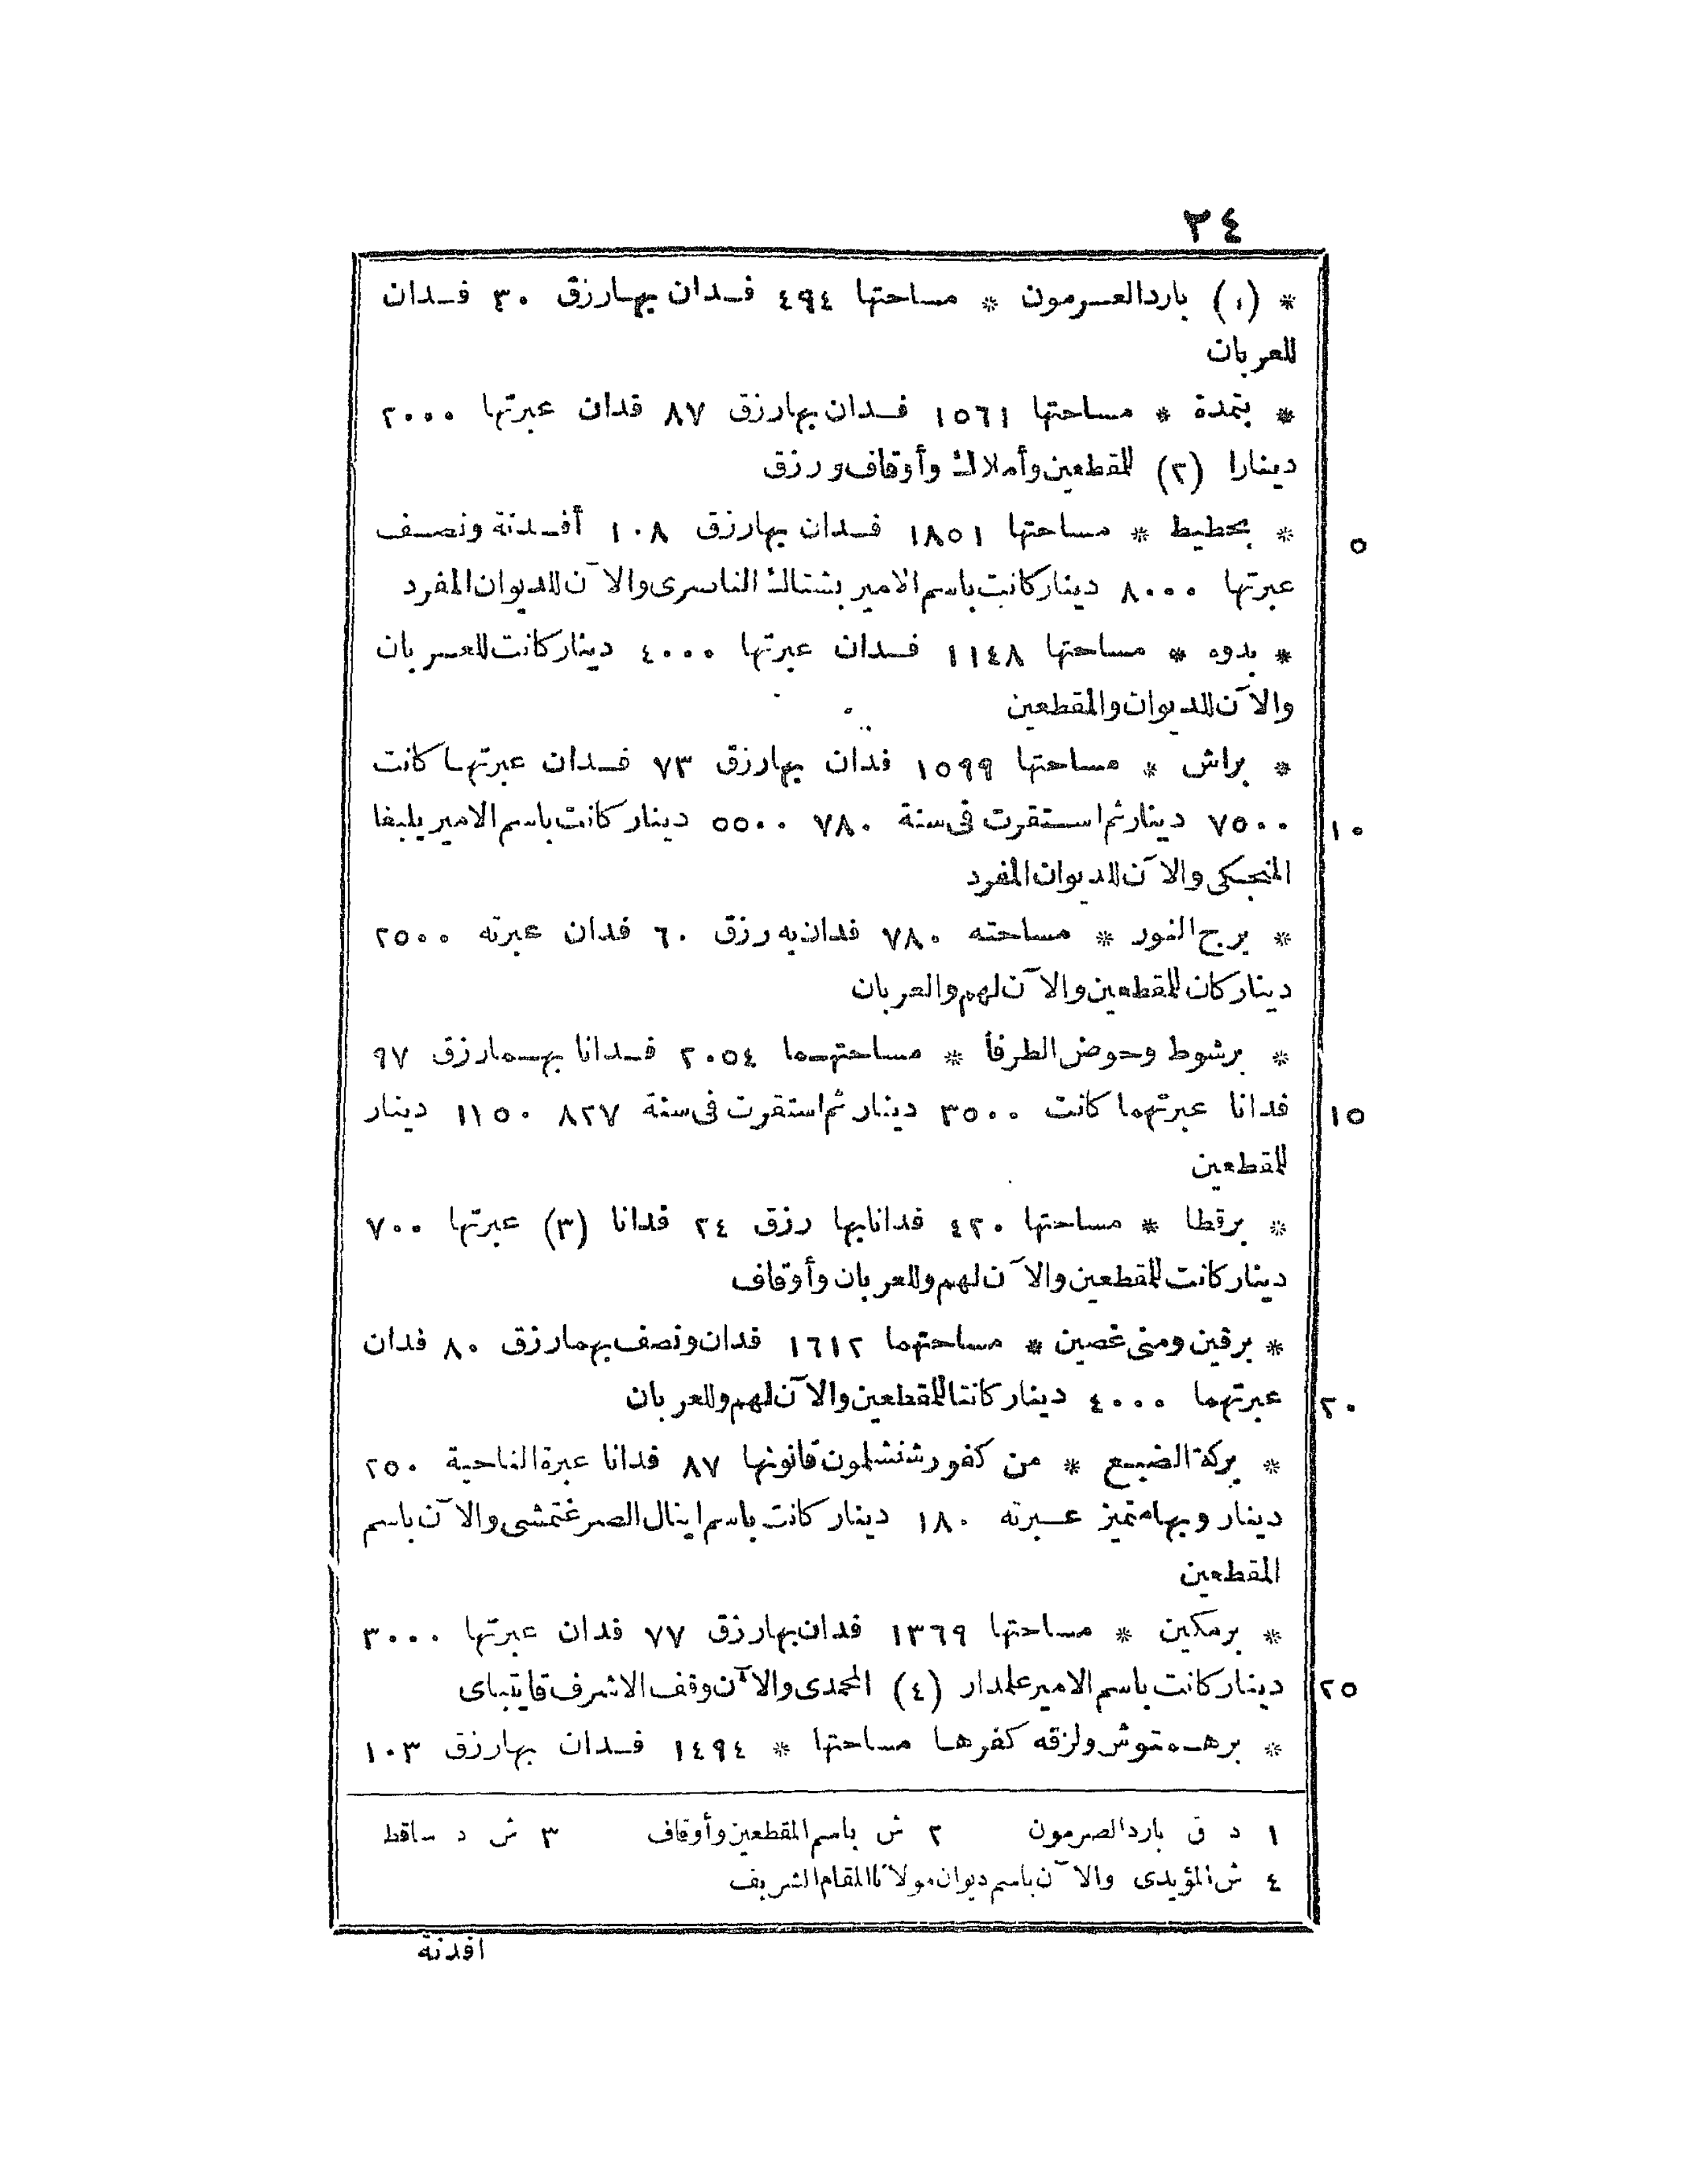 ٢٤
* (١) باردالعرمون * مساحتها ٤٩٤ فدان بهارزق ٣٠ فدان
للعربان
* بتمدة * مساحتها ١٥٦١ فدان بهارزق ٨٧ فدان عبرتها ٢٠٠٠
دينارا (٢) للمقطعين وأملاك وأوقاف ورزق
* بحطيط * مساحتها ١٨٥١ فدان بهارزق ١٠٨ أفدنة ونصف
٥
عبرتها ٨٠٠٠ دينار كانت باسم الامير بشتاك الناصرى والآن للديوان المفرد
* بدوه * مساحتها ١١٤٨ فدان عبرتها ٤٠٠٠ دينار كانت للعربان
والآن للديوان والمقطعين
* براش * مساحتها ١٥٩٩ فدان بهارزق ٧٣ فدان عبرتها كانت
٧٥٠٠ دينار ثم استقرت فى سنة ٧٨٠ ٥٥٠٠ دينار كانت باسم الامير يلبغا
١٠
المنجكى والآن للديوان المفرد
* برج النور * مساحته ٧٨٠ فدان به رزق ٦٠ فدان عبرته ٢٥٠٠
دينار كان للمقطعين والآن لهم والعربان
* برشوط وحوض الطرفا * مساحتهما ٢٠٥٤ فدانا بهمارزق ٩٧
فدانا عبرتهما كانت ٣٥٠٠ دينار ثم استقرت فى سنة ٨٢٧ ١١٥٠ دينار
١٥
للمقطعين
* برقطا * مساحتها ٤٢٠ فدانابها رزق ٢٤ فدانا (٣) عبرتها ٧٠٠
دينار كانت للمقطعين والآن لهم وللعربان وأوقاف
* برقين ومنى غصين * مساحتهما ١٦١٢ فدان ونصف بهمارزق ٨٠ فدان
عبرتهما ٤٠٠٠ دينار كانتا للمقطعين والآن لهم وللعربان
٢٠
* بركة الضبع * من كفور شنشلمون قانونها ٨٧ فدانا عبرة الناحية ٢٥٠
دينار وبها متميز عبرته ١٨٠ دينار كانت باسم اينال الصرغتمشى والآن باسم
المقطعين
* برمكين * مساحتها ١٣٦٩ فدان بهارزق ٧٧ فدان عبرتها ٣٠٠٠
دينار كانت باسم الامير علمدار (٤) المحمدى والآن وقف الاشرف قايتباى
٢٥
* برهمتوش ولزقه كفرها مساحتها * ١٤٩٤ فدان بهارزق ١٠٣
١ د ق باردالصرمون ٢ ش باسم المقطعين وأوقاف ٣ ش د ساقط
٤ ش المؤيدى والآن باسم ديوان مولانا المقام الشريف
افدنة